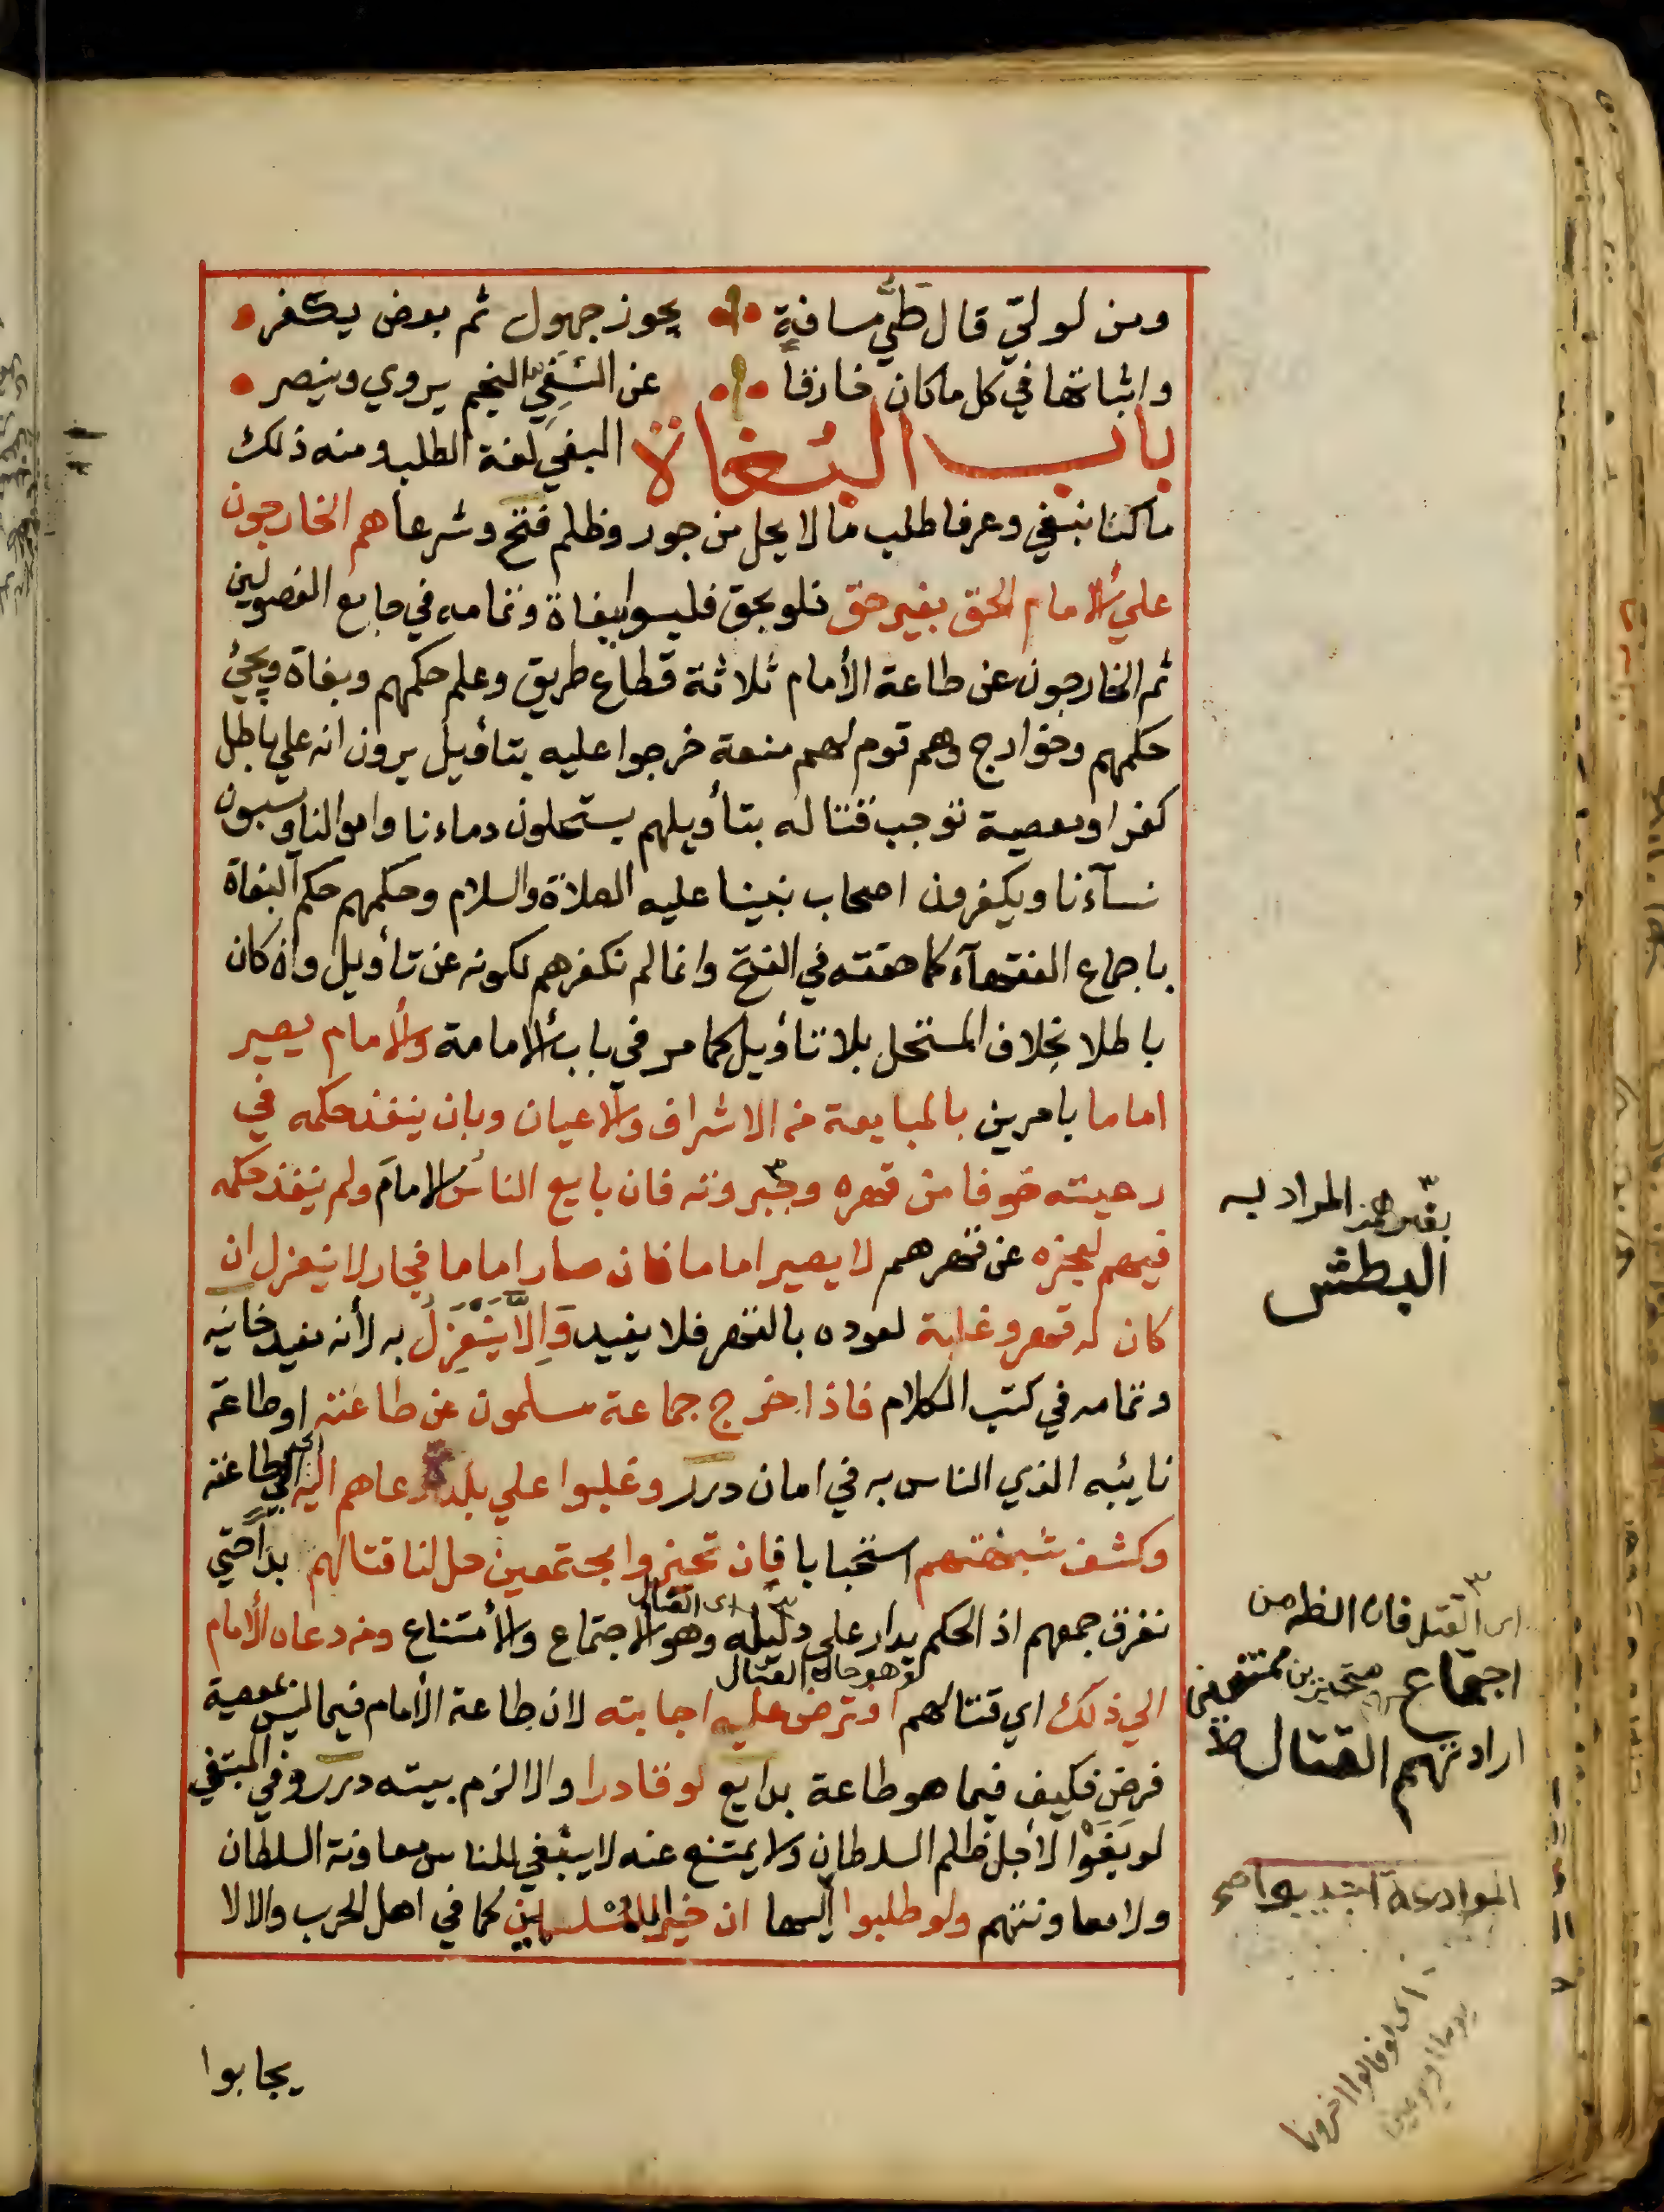 ومن لولي قال طي مسافة يجوز جهول ثم بعض يكفر
واثباتها في كل ما كان خارقا عن النسفي النجم يروي وينصر
باب البُغاة البغي لغة الطلب ومنه ذلك
ما كنا نبغي وعرفا طلب ما لا يحل من جور وظلم فتح وشرعا هم الخارجون
علي الامام الحق بغير حق فلو بحق فليسوا ببغاة وتمامه في جامع الفصولين
ثم الخارجون عن طاعة الأمام ثلاثة قطاع طريق وعلم حكمهم وبغاة ويجئ
حكمهم وخوارج وهم قوم لهم منعة خرجوا عليه بتأويل يرون انه علي باطل
كفر او معصية توجب قتاله بتأويلهم يستحلون دماءنا واموالنا ويسبون
نسآءنا ويكفرون اصحاب نبينا عليه الصلاة والسلام وحكمهم حكم البغاة
باجماع الفقهآء كما حققه في الفتح وانما لم نكفرهم لكونه عن تأويل وان كان
باطلا بخلاف المستحل بلا تأويل كما مر في باب الامامة والأمام يصير
اماما بامرين بالمبايعة من الاشراف والاعيان وبان ينفذ حكمه في
رعيته خوفا من قهره وجبروته فان بايع الناس الامام ولم ينفذ حكمه
فيهم لعجزه عن قهرهم لا يصير اماما فان صار اماما فجار لا ينعزل ان
كان له قهر وغلبة لعوده بالقهر فلا يفيد وَاِلَّا يَنْعَزِلُ به لأنه مفيد خانيه
وتمامه في كتب الكلام فاذا خرج جماعة مسلمون عن طاعته او طاعة
نايبه الذي الناس به في امان درر وغلبوا علي بلد دعاهم اليه اي الي طاعته
وكشف شبهتهم استحبابا فان تحيزوا مجتمعين حل لنا قتالهم بدأ حتي
نفرق جمعهم اذ الحكم يدار على دليله وهو الاجتماع والأمتناع ومن دعاه الأمام
الي ذلك اي قتالهم افترض عليه اجابته لان طاعة الأمام فيما ليس بمعصية
فرض فكيف فيما هو طاعة بدايع لو قادرا والا لزم بيته درر وفي المبتغي
لو بَغَوْا لأجل ظلم السلطان ولا يمتنع عنه لا ينبغي للناس معاونة السلطان
ولا معاونتهم ولو طلبوا الموادعة اجيبوا اليها ان خيرا للمسلمين كما في اهل الحرب والا لا
يجابوا
المراد به
البطش
اي القتل فان الظه من
اجتماعهم متحيزين ممتنعين
ارادتهم القتال ط
الموادعة اجيبوا صح
اي لو قالوا اخرونا